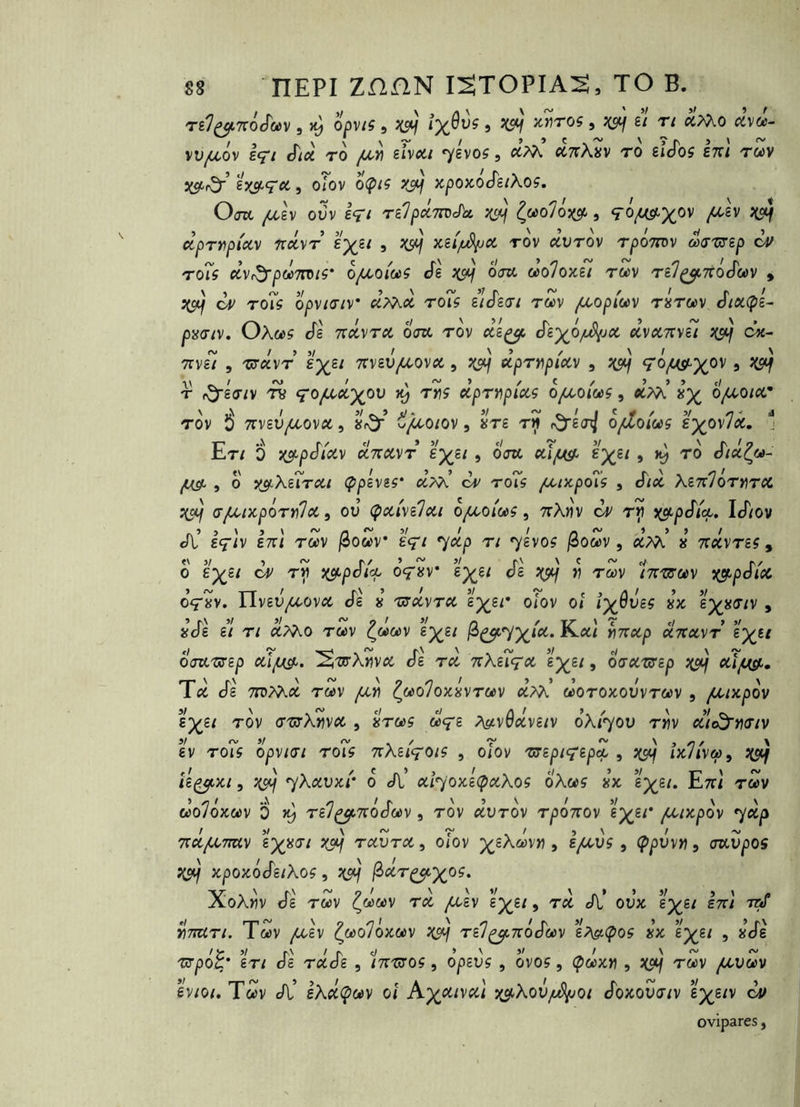 88 ΠΕΡΙ ΖΩΩΝ ΙΣΤΟΡΙΑΣ, ΤΟ Β.
τετραπόδων, καὶ ὄρνις, καὶ ἰχθὺς, καὶ κῆτος, καὶ εἴ τι ἄλλο ἀνώ-
νυμόν ἐστι διὰ τὸ μὴ εἶναι γένος, ἀλλ' ἁπλοῦν τὸ εἶδος ἐπὶ τῶν
καθ' ἕκαστα, οἷον ὄφις καὶ κροκόδειλος.
Ὅσα μὲν οὖν ἐστι τετράποδα καὶ ζωοτόκα, στόμαχον μὲν καὶ
ἀρτηρίαν πάντ' ἔχει, καὶ κείμενα τὸν αὐτὸν τρόπον ὥσπερ ἐν
τοῖς ἀνθρώποις· ὁμοίως δὲ καὶ ὅσα ὠοτοκεῖ τῶν τετραπόδων,
καὶ ἐν τοῖς ὄρνισιν· ἀλλὰ τοῖς εἴδεσι τῶν μορίων τούτων διαφέ-
ρουσιν. Ὅλως δὲ πάντα ὅσα τὸν ἀέρα δεχόμενα ἀναπνεῖ καὶ ἐκ-
πνεῖ, πάντ' ἔχει πνεύμονα, καὶ ἀρτηρίαν, καὶ στόμαχον, καὶ
τ θέσιν τοῦ στομάχου καὶ τῆς ἀρτηρίας ὁμοίως, ἀλλ' οὐχ ὅμοια·
τὸν δὲ πνεύμονα, οὐθ' ὅμοιον, οὔτε τῇ θέσει ὁμοίως ἔχοντα.
Ἔτι δὲ καρδίαν ἅπαντ' ἔχει, ὅσα αἷμα ἔχει, καὶ τὸ διάζω-
μα, ὃ καλεῖται φρένες· ἀλλ' ἐν τοῖς μικροῖς, διὰ λεπτότητα
καὶ σμικρότητα, οὐ φαίνεται ὁμοίως, πλὴν ἐν τῇ καρδίᾳ. Ἴδιον
δ' ἐστὶν ἐπὶ τῶν βοῶν· ἔστι γάρ τι γένος βοῶν, ἀλλ' οὐ πάντες,
ὃ ἔχει ἐν τῇ καρδίᾳ ὀστοῦν· ἔχει δὲ καὶ ἡ τῶν ἵππων καρδία
ὀστοῦν. Πνεύμονα δὲ οὐ πάντα ἔχει· οἷον οἱ ἰχθύες οὐκ ἔχουσιν,
οὐδὲ εἴ τι ἄλλο τῶν ζώων ἔχει βράγχια. Καὶ ἧπαρ ἅπαντ' ἔχει
ὅσαπερ αἷμα. Σπλῆνα δὲ τὰ πλεῖστα ἔχει, ὅσαπερ καὶ αἷμα.
Τὰ δὲ πολλὰ τῶν μὴ ζωοτοκούντων ἀλλ' ὠοτοκούντων, μικρὸν
ἔχει τὸν σπλῆνα, οὕτως ὥστε λανθάνειν ὀλίγου τὴν αἴσθησιν
ἐν τοῖς ὄρνισι τοῖς πλείστοις, οἷον περιστερᾷ, καὶ ἰκτίνῳ, καὶ
ἱέρακι, καὶ γλαυκί· ὁ δ' αἰγοκέφαλος ὅλως οὐκ ἔχει. Ἐπὶ τῶν
ὠοτόκων δὲ καὶ τετραπόδων, τὸν αὐτὸν τρόπον ἔχει· μικρὸν γὰρ
πάμπαν ἔχουσι καὶ ταῦτα, οἷον χελώνη, ἐμὺς, φρύνη, σαῦρος
καὶ κροκόδειλος, καὶ βάτραχος.
Χολὴν δὲ τῶν ζώων τὰ μὲν ἔχει, τὰ δ' οὐκ ἔχει ἐπὶ τῷ
ἥπατι. Τῶν μὲν ζωοτόκων καὶ τετραπόδων ἔλαφος οὐκ ἔχει, οὐδὲ
πρόξ· ἔτι δὲ τάδε, ἵππος, ὀρεὺς, ὄνος, φώκη, καὶ τῶν μυῶν
ἔνιοι. Τῶν δ' ἐλάφων οἱ Ἀχαιναὶ καλούμενοι δοκοῦσιν ἔχειν ἐν
ovipares,